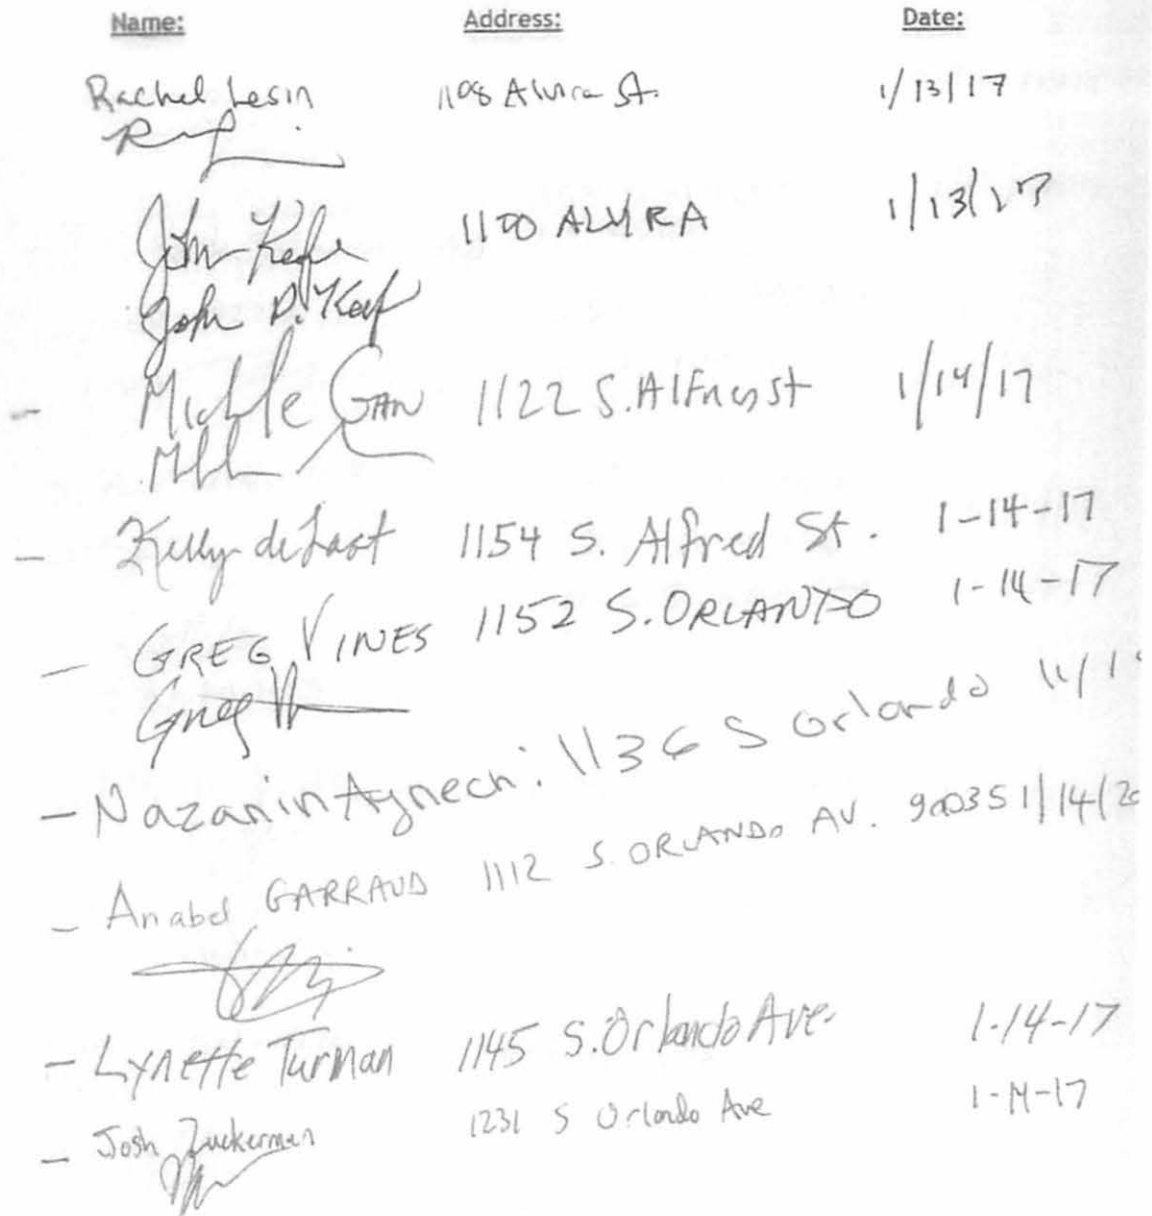 Name: Address: Date:
Rachel Lesin 1108 Alvira St. 1/13/17
John Keefe 1100 ALVIRA 1/13/17
John D. Keef
Michele GAN 1122 S. Alfred st 1/14/17
Kelly deLaat 1154 S. Alfred St. 1-14-17
GREG VINES 1152 S. ORLANDO 1-14-17
Greg
- Nazanin 1136 S Orlando
- Anabel GARRAUD 1112 S. ORLANDO AV. 90035 1/14/20
- Lynette Turman 1145 S. Orlando Ave. 1-14-17
- Josh Zuckerman 1231 S Orlando Ave 1-14-17